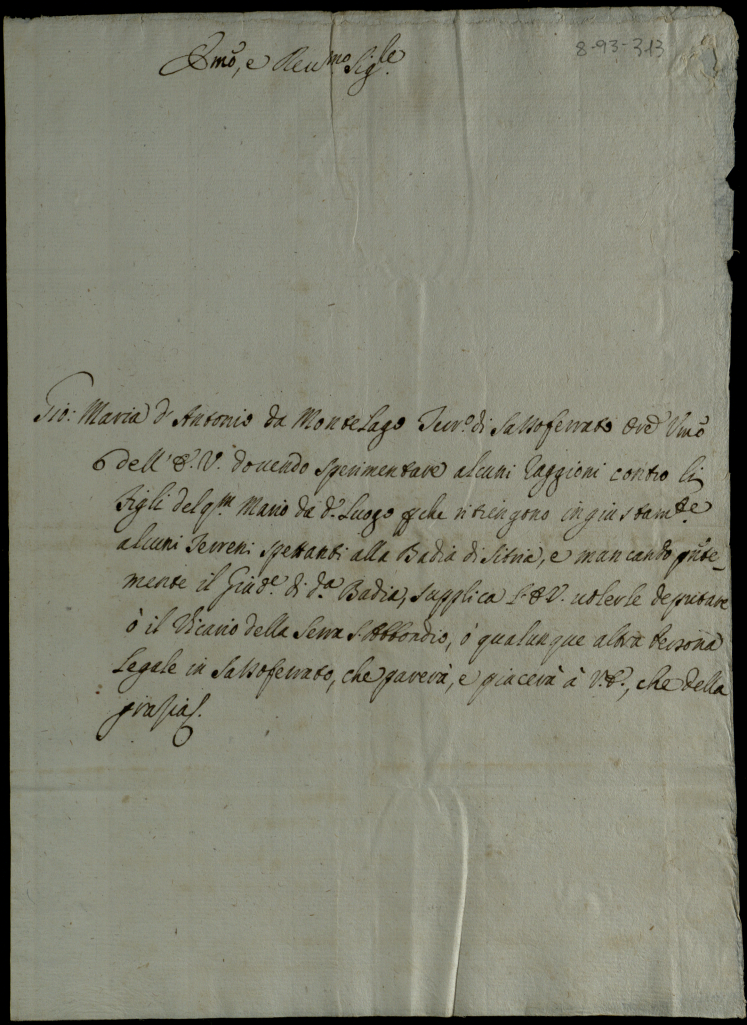 8-93-313
Em̃o, e Reu^mo Sig^le.
Gio: Maria d'Antonio da MonteLago Terr.o di Sassoferrato Ore Um̃o
dell'E.V. douendo sperimentare alcuni raggioni contro li
Figli del q^m Mario da d.o Luogo p che ritengono ingiustam^te
alcuni Terreni spettanti alla Badia di Sitria, e mancando pñte_
mente il Giud.e di d.a Badia, supplica l'E.V. uolerle deputare
ò il Vicario della Serra S. Abbondio, ò qualunque altra persona
Legale in Sassoferrato, che parerà, e piacerà à V.E., che della
grazia.